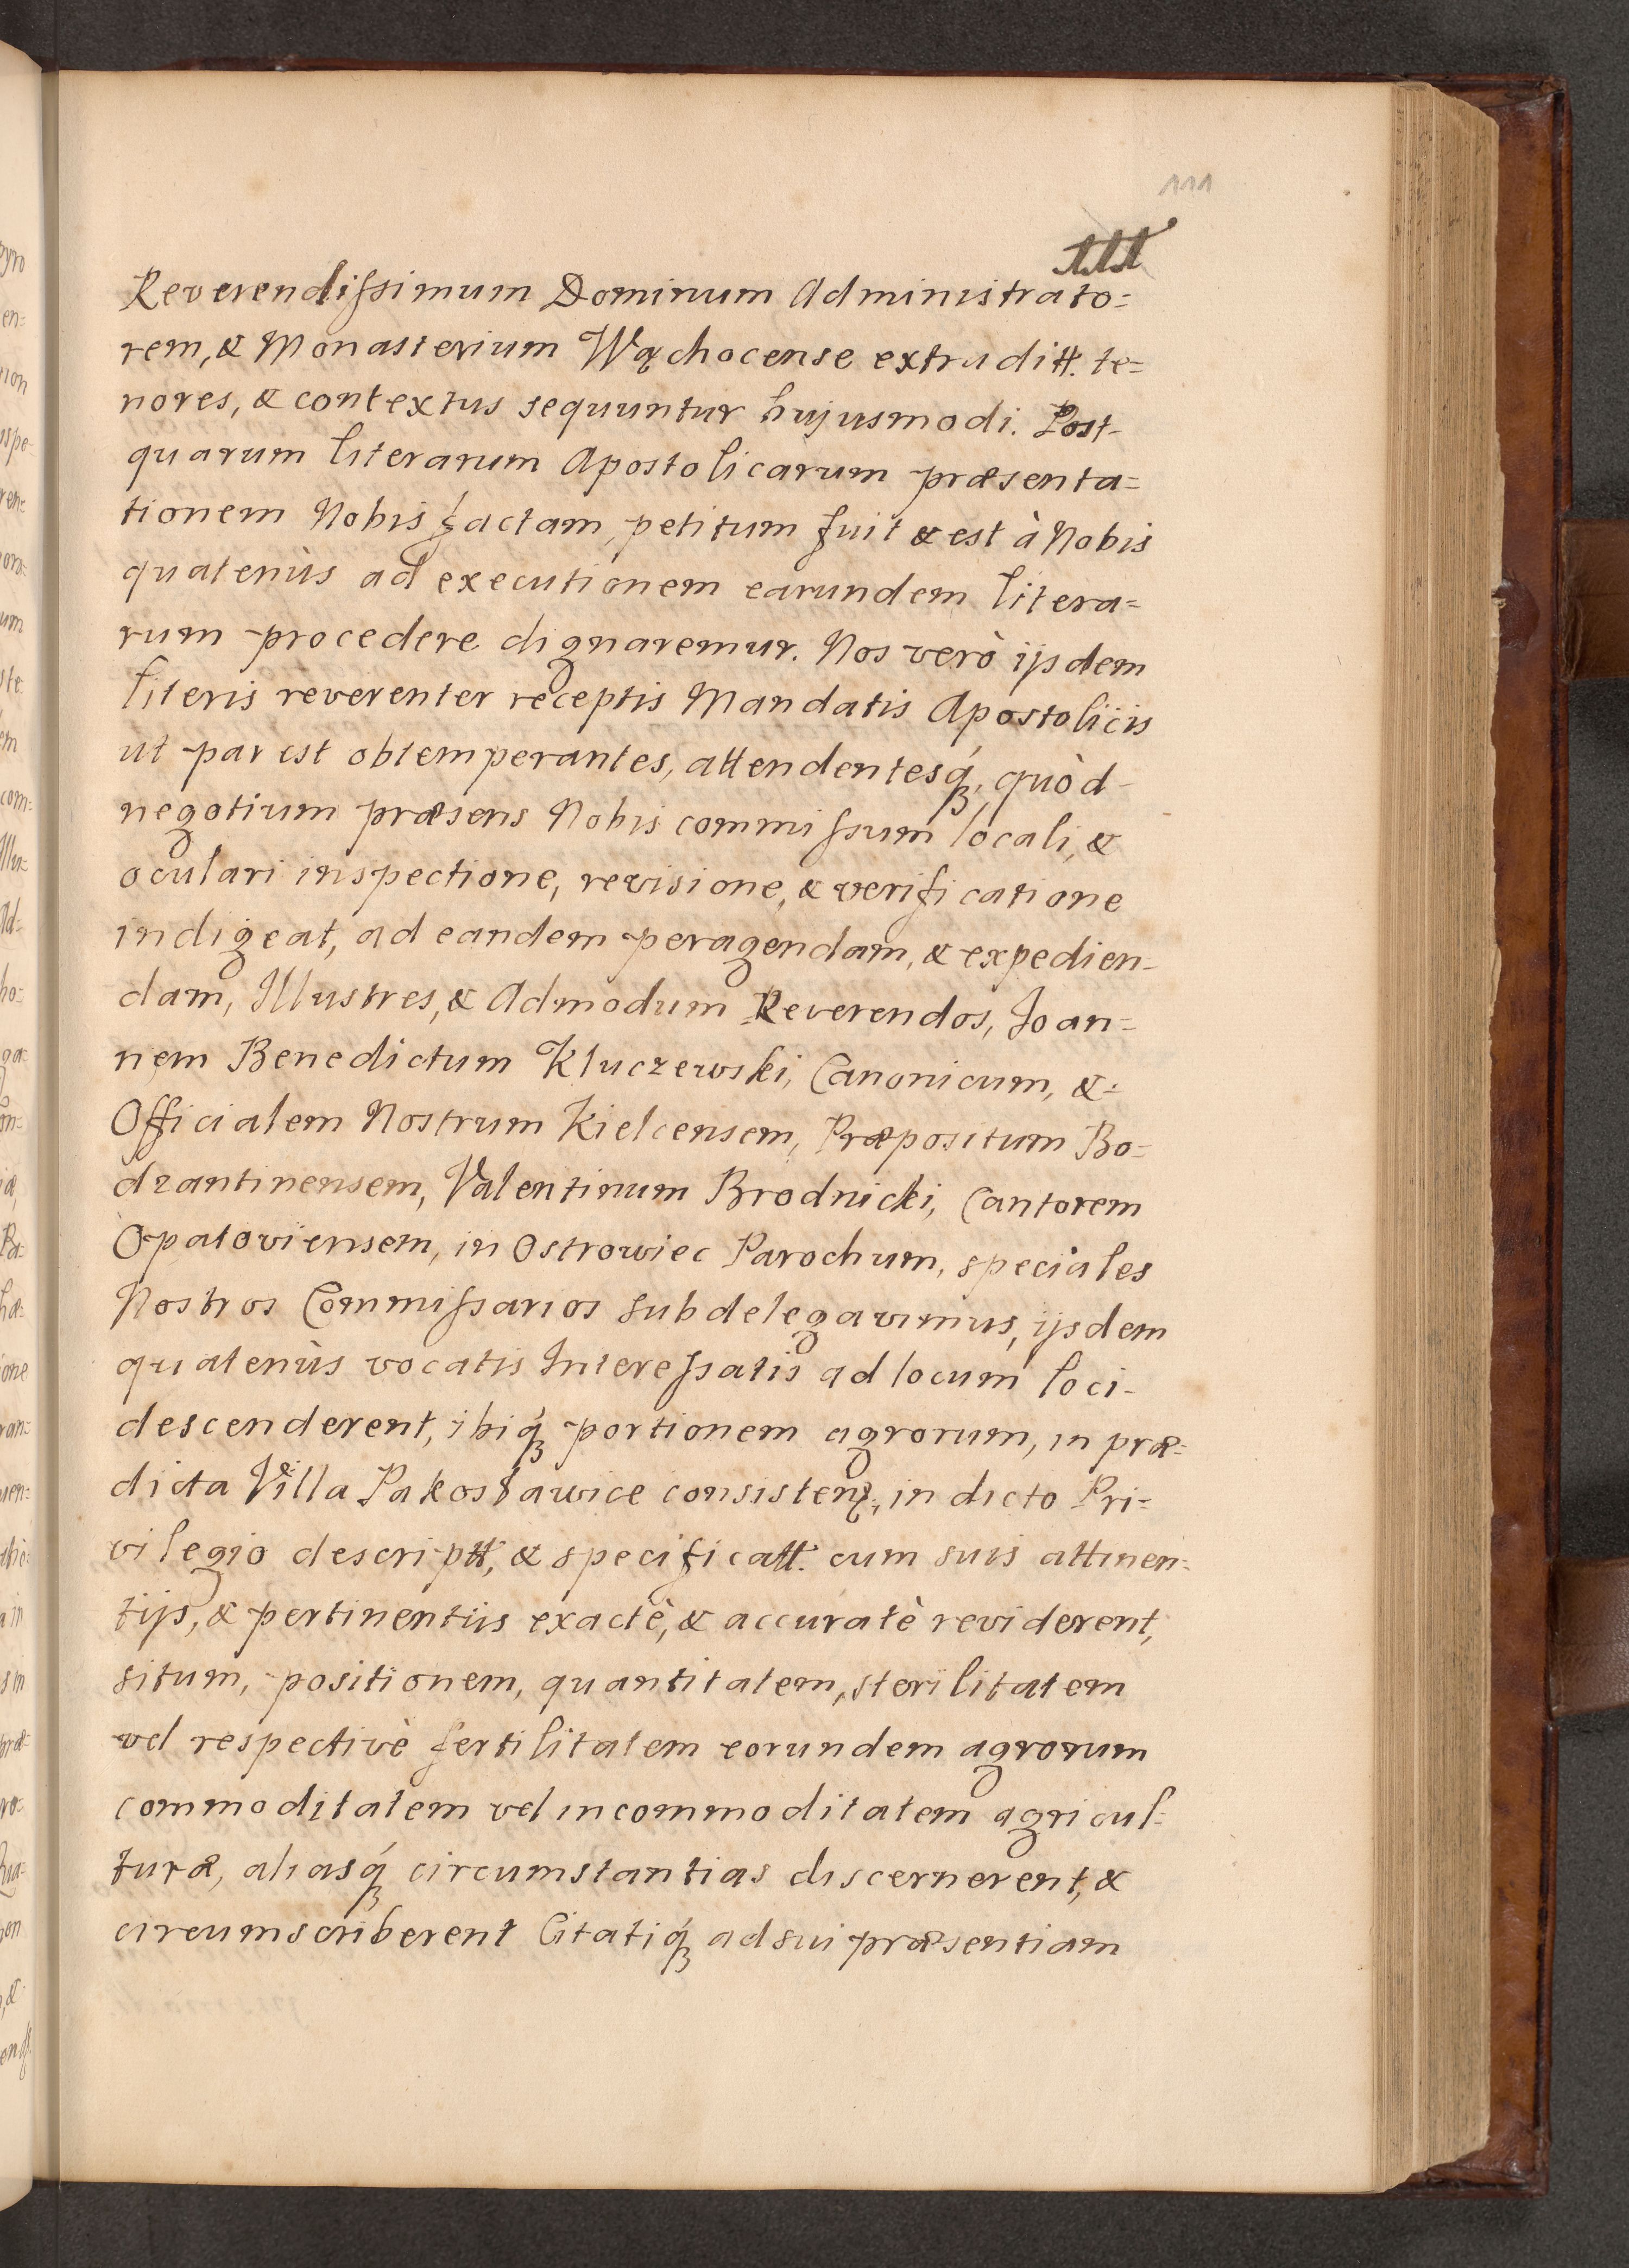 111
111
Reverendiſsimum Dominum Administrato=
rem, & Monasterium Wąchocense extraditt. te=
nores, & contextus sequuntur hujusmodi. Post-
quarum literarum Apostolicarum præsenta=
tionem Nobis factam, petitum fuit & est à Nobis
quatenùs ad executionem earundem litera=
rum procedere dignaremur. Nos verò ijsdem
literis reverenter receptis Mandatis Apostolicis
ut par est obtemperantes, attendentesq́ꝫ, quòd
negotium præsens Nobis commiſsum locali, &
oculari inspectione, revisione, & verificatione
indigeat, ad eandem peragendam, & expedien-
dam, Illustres, & Admodum Reverendos, Joan=
nem Benedictum Kluczewski, Canonicum, &
Officialem Nostrum Kielcensem, Præpositum Bo=
dzantinensem, Valentinum Brodnicki, Cantorem
Opatoviensem, in Ostrowiec Parochum, speciales
Nostros Commiſsarios subdelegavimus, ijsdem
quatenùs vocatis Intereſsatis ad locum loci-
descenderent, ibiq́ꝫ portionem agrorum, in præ=
dicta Villa Pakosławice consisten., in dicto Pri=
vilegio descriptt, & specificatt. cum suis attinen=
tijs, & pertinentiis exactè, & accuratè reviderent,
situm, positionem, quantitatem, sterilitatem
vel respectivè fertilitatem eorundem agrorum
commoditatem vel incommoditatem agricul=
turæ, aliasq́ꝫ circumstantias discernerent, &
circumscriberent Citatiq́ꝫ ad sui præsentiam